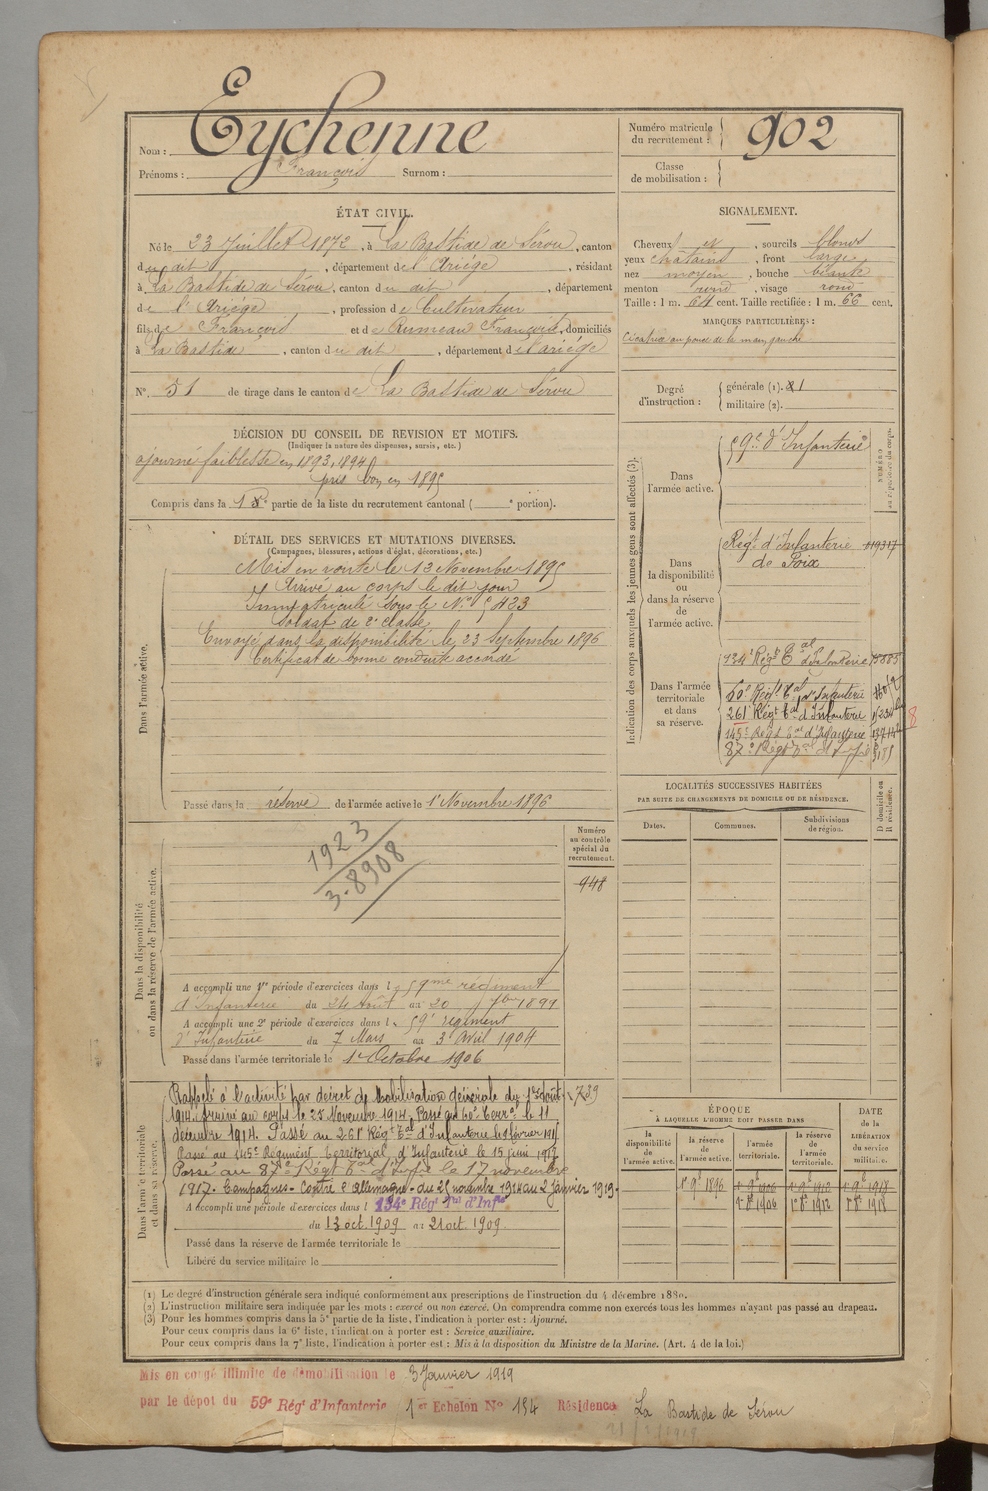 Nom : Eychenne
Prénoms : François Surnom :
Numéro matricule du recrutement : 902
Classe de mobilisation :
ÉTAT CIVIL.
Né le 23 Juillet 1872, à La Bastide de Sérou, canton
du dit, département de l'Ariége, résidant
à La Bastide de Sérou, canton du dit, département
de l'Ariége, profession de Cultivateur
fils de François et de Rumeau Françoise, domiciliés
à La Bastide, canton du dit, département de l'ariége
N° 51 de tirage dans le canton de La Bastide de Sérou
SIGNALEMENT.
Cheveux et, sourcils blonds
yeux chatains, front large
nez moyen, bouche béante
menton rond, visage rond
Taille : 1 m. 64 cent. Taille rectifiée : 1 m. 66 cent.
MARQUES PARTICULIÈRES :
Cicatrice au pouce de la main gauche
Degré d'instruction : générale (1). 1
militaire (2).
DÉCISION DU CONSEIL DE REVISION ET MOTIFS.
(Indiquer la nature des dispenses, sursis, etc.)
ajourné faiblesse en 1893, 1894
pris bon en 1895
Compris dans la 1e partie de la liste du recrutement cantonal ( e portion).
DÉTAIL DES SERVICES ET MUTATIONS DIVERSES.
(Campagnes, blessures, actions d'éclat, décorations, etc.)
Dans l'armée active.
Mis en route le 13 Novembre 1895
Arrivé au corps le dit jour
Immatriculé sous le N° 5423
Soldat de 2e classe
Envoyé dans la disponibilité le 23 Septembre 1896
Certificat de bonne conduite accordé
Passé dans la réserve de l'armée active le 1er Novembre 1896
Indication des corps auxquels les jeunes gens sont affectés (3).
NUMÉRO au répertoire du corps.
Dans l'armée active.
59e d'Infanterie
Dans la disponibilité ou dans la réserve de l'armée active.
Régt d'Infanterie
de Foix
Dans l'armée territoriale et dans sa réserve.
134e Régt Tal d'Infanterie
60e Régt Tal d'Infanterie
261e Régt Tal d'Infanterie
145e Régt Tal d'Infanterie
87e Régt Tal
8
LOCALITÉS SUCCESSIVES HABITÉES
PAR SUITE DE CHANGEMENTS DE DOMICILE OU DE RÉSIDENCE.
Dates. Communes. Subdivisions de région. D domicile ou R résidence.
Dans la disponibilité ou dans la réserve de l'armée active.
Numéro au contrôle spécial du recrutement.
948
1923
3-8908
A accompli une 1re période d'exercices dans l 59me régiment
d'Infanterie du 24 Août au 20 7bre 1899
A accompli une 2e période d'exercices dans l 59e régiment
d'Infanterie du 7 Mars au 3 Avril 1904
Passé dans l'armée territoriale le 1er Octobre 1906
Dans l'armée territoriale et dans sa réserve.
Rappelé à l'activité par décret de Mobilisation générale du 1er Août
1914. Arrivé au corps le 25 Novembre 1914. Passé au 60e Terral le 11
décembre 1914. Passé au 261e Régt Tal d'Infanterie le 1 février 1915
Passé au 145e Régiment Territorial d'Infanterie le 15 juin 1917
Passé au 87e Régt Tal d'Infie le 17 novembre
1917. Campagnes - Contre l'Allemagne - du 25 novembre 1914 au 2 Janvier 1919.
739
A accompli une période d'exercices dans l 134e Régt Tal d'Infie
du 13 oct. 1909 au 21 oct. 1909.
Passé dans la réserve de l'armée territoriale le
Libéré du service militaire le
ÉPOQUE
À LAQUELLE L'HOMME DOIT PASSER DANS
DATE DE LA LIBÉRATION du service militaire.
la disponibilité de l'armée active. la réserve de l'armée active. l'armée territoriale. la réserve de l'armée territoriale.
1er 9e 1896 1er 9e 1906 1er 9e 1912 1er 9e 1918
1er 8e 1906 1er 8e 1912 1er 8e 1918
(1) Le degré d'instruction générale sera indiqué conformément aux prescriptions de l'instruction du 4 décembre 1889.
(2) L'instruction militaire sera indiquée par les mots : exercé ou non exercé. On comprendra comme non exercés tous les hommes n'ayant pas passé au drapeau.
(3) Pour les hommes compris dans la 5e partie de la liste, l'indication à porter est : Ajourné.
Pour ceux compris dans la 6e liste, l'indication à porter est : Service auxiliaire.
Pour ceux compris dans la 7e liste, l'indication à porter est : Mis à la disposition du Ministre de la Marine. (Art. 4 de la loi.)
Mis en congé illimité de démobilisation le 3 Janvier 1919
par le dépot du 59e Régt d'Infanterie 1er Echelon N° 134 Résidence La Bastide de Sérou